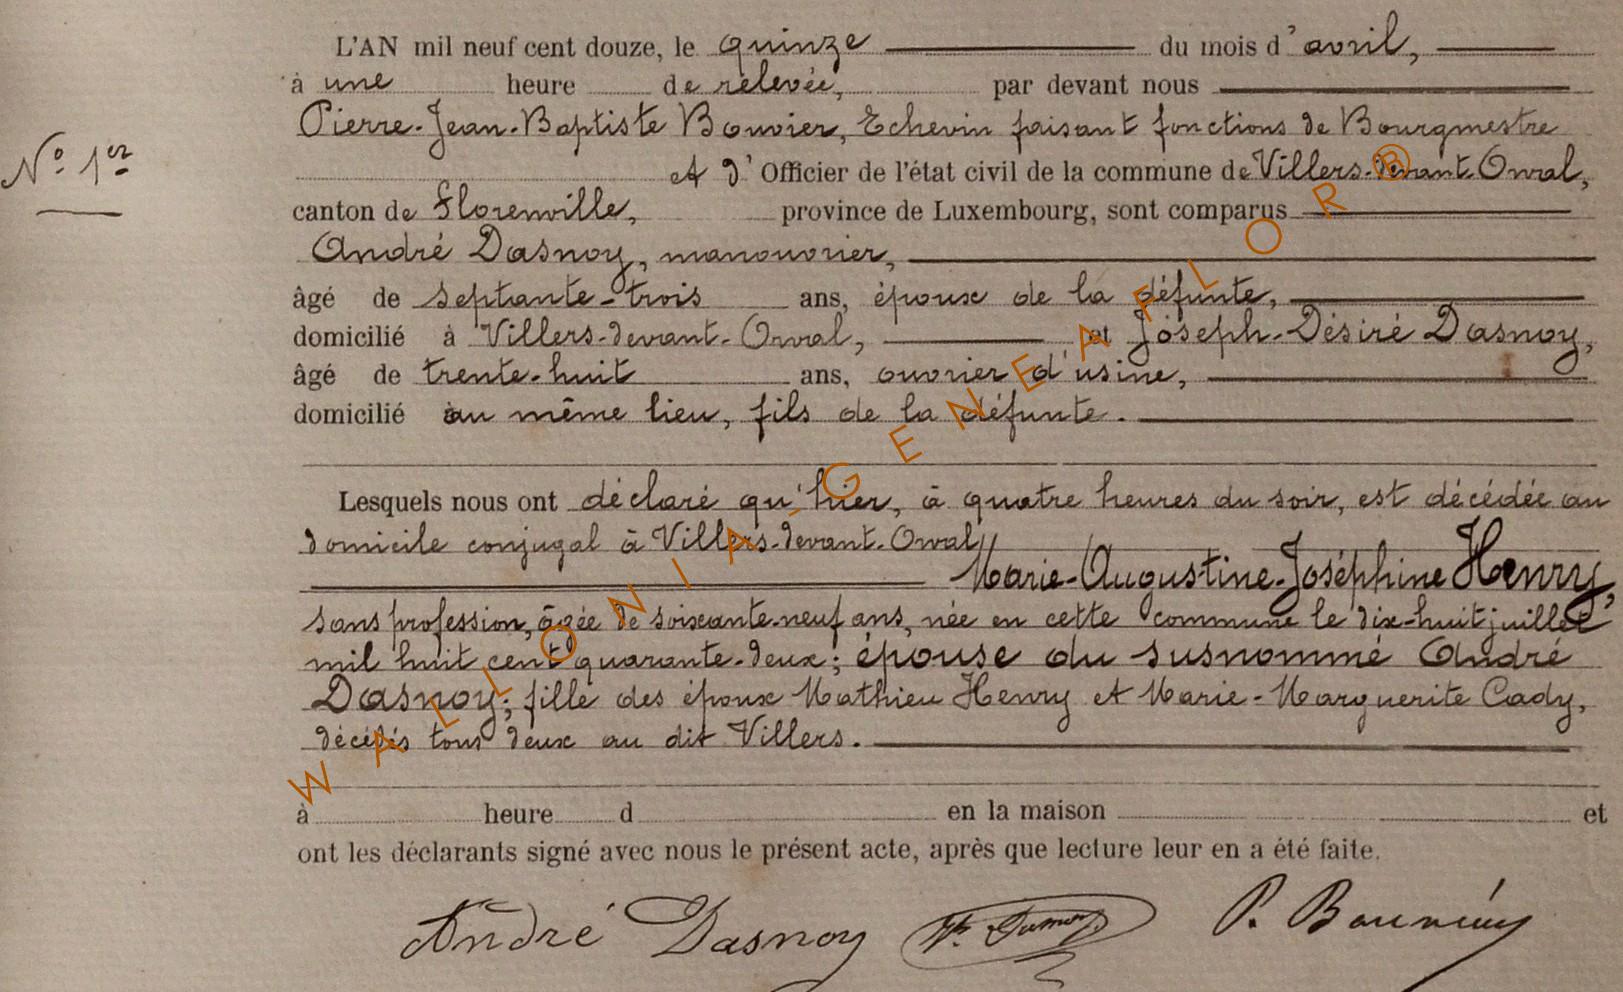 L'AN mil neuf cent douze, le quinze du mois d'avril,
à une heure de relevée, par devant nous
Pierre-Jean-Baptiste Bouvier, Echevin faisant fonctions de Bourgmestre
Nº 1er
et d'Officier de l'état civil de la commune de Villers-devant-Orval,
canton de Florenville, province de Luxembourg, sont comparus
André Dasnoy, manouvrier,
âgé de septante-trois ans, époux de la défunte,
domicilié à Villers-devant-Orval, et Joseph-Désiré Dasnoy,
âgé de trente-huit ans, ouvrier d'usine,
domicilié au même lieu, fils de la défunte.
Lesquels nous ont déclaré qu'hier, à quatre heures du soir, est décédée au
domicile conjugal à Villers-devant-Orval,
Marie-Augustine-Joséphine Henry,
sans profession, âgée de soixante-neuf ans, née en cette commune le dix-huit juillet
mil huit cent quarante-deux; épouse du susnommé André
Dasnoy; fille des époux Mathieu Henry et Marie-Marguerite Cady,
décédés tous deux au dit Villers.
à heure d en la maison et
ont les déclarants signé avec nous le présent acte, après que lecture leur en a été faite.
André Dasnoy P. Bouvier
WALLONIA-GENEAFLOR®